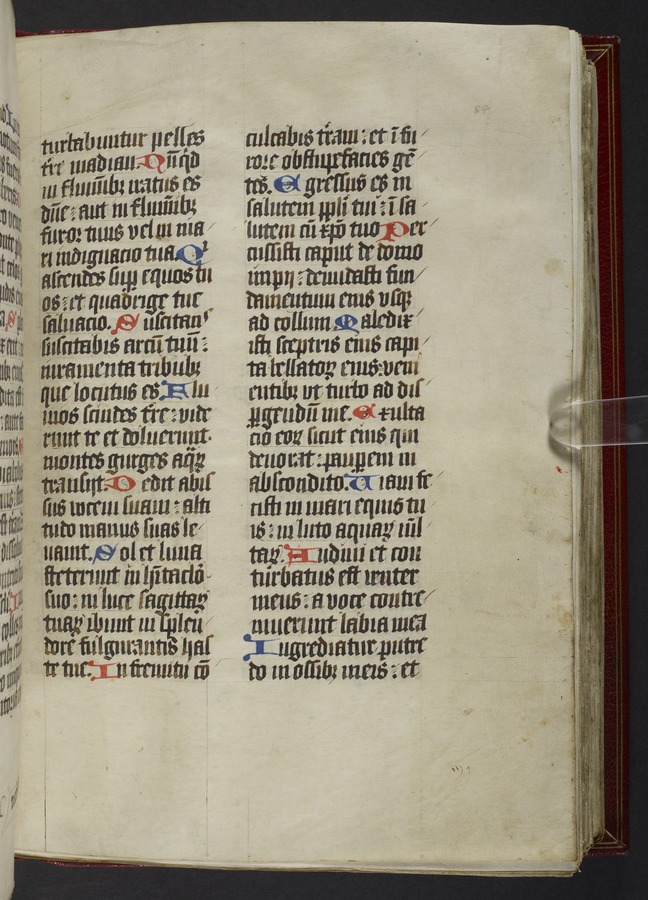 turbabuntur pelles
t̄re madian. Nūq̄d
in flumīībꝫ iratus es
dn̄e: aut in flumīībꝫ
furor tuus vel in ma
ri indignacio tua. Qͥ
ascendes suꝑ equos tu
os: et quadrige tue
saluacio. Suscitanˢ
suscitabis arcū tuū:
iuramenta tribubꝫ
que locutus es. Flu
uios scindes t̄re: vide
runt te et doluerunt.
montes gurges aq̄ꝝ
transijt. Dedit abis
sus vocem suam: alti
tudo manus suas le
uauit. Sol et luna
steterunt in hītaclō
suo: in luce sagittaꝝ
tuaꝝ ibunt in splēn
dorē fulgurantis has
te tue. In fremitu cō
culcabis t̄ram: et ī fu
rore obstupefacies gē
tes. Egressus es in
salutem ppl̄i tui: ī sa
lutem cū xp̄o tuo. Per
cussisti caput de domo
impij: denudasti fun
damentum eius vsqꝫ
ad collum. Maledix
isti sceptris eius capi
ta bellatoꝝ eius: veni
entibꝫ vt turbo ad dis
ꝑgendū me. Exulta
cio eoꝝ sicut eius qui
deuorat: pauꝑem in
abscondito. Uiam fe
cisti in mari equis tu
is: in luto aquaꝝ mᷓl
taꝝ. Audiui et con
turbatus est venter
meus: a voce contre
muerunt labia mea
Ingrediatur putre
do in ossibꝫ meis: et
84